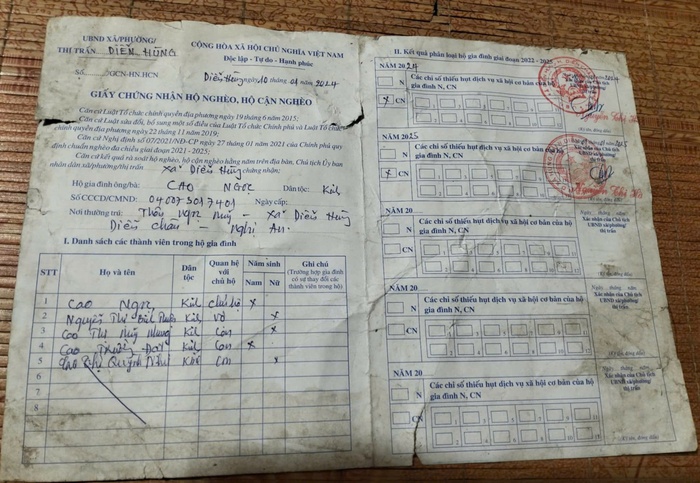 UBND XÃ/PHƯỜNG/
THỊ TRẤN DIỄN HÙNG
Số: /GCN-HN.HCN
CỘNG HÒA XÃ HỘI CHỦ NGHĨA VIỆT NAM
Độc lập - Tự do - Hạnh phúc
Diễn Hùng ngày 10 tháng 01 năm 2024
GIẤY CHỨNG NHẬN HỘ NGHÈO, HỘ CẬN NGHÈO
Căn cứ Luật Tổ chức chính quyền địa phương ngày 19 tháng 6 năm 2015;
Căn cứ Luật sửa đổi, bổ sung một số điều của Luật Tổ chức Chính phủ và Luật Tổ chức
chính quyền địa phương ngày 22 tháng 11 năm 2019;
Căn cứ Nghị định số 07/2021/NĐ-CP ngày 27 tháng 01 năm 2021 của Chính phủ quy
định chuẩn nghèo đa chiều giai đoạn 2021 - 2025;
Căn cứ kết quả rà soát hộ nghèo, hộ cận nghèo hằng năm trên địa bàn, Chủ tịch Ủy ban
nhân dân xã/phường/thị trấn Xã Diễn Hùng chứng nhận:
Hộ gia đình ông/bà: CAO NGỌC Dân tộc: Kinh
Số CCCD/CMND: 040073017401 Ngày cấp:
Nơi thường trú: Thôn Ngọc Mỹ - Xã Diễn Hùng
Diễn Châu - Nghệ An.
I. Danh sách các thành viên trong hộ gia đình
STT Họ và tên Dân tộc Quan hệ với chủ hộ Năm sinh Nam Nữ Ghi chú (Trường hợp gia đình có sự thay đổi các thành viên trong hộ)
1 Cao Ngọc Kinh chủ hộ x
2 Nguyễn Thị Kinh vợ x
3 Cao Thị Mỹ Kinh Con x
4 Cao Đạt Kinh Con x
5 Quỳnh Như Kinh Con x
6
7
8
II. Kết quả phân loại hộ gia đình giai đoạn 2022 - 2025
NĂM 2024
N
x CN
Các chỉ số thiếu hụt dịch vụ xã hội cơ bản của hộ
gia đình N, CN
(Ký tên, đóng dấu)
NĂM 2025
N
x CN
Các chỉ số thiếu hụt dịch vụ xã hội cơ bản của hộ
gia đình N, CN
(Ký tên, đóng dấu)
NĂM 20
N
CN
Các chỉ số thiếu hụt dịch vụ xã hội cơ bản của hộ
gia đình N, CN
Ngày tháng năm
Xác nhận của Chủ tịch
UBND xã/phường/
thị trấn
(Ký tên, đóng dấu)
NĂM 20
N
CN
Các chỉ số thiếu hụt dịch vụ xã hội cơ bản của hộ
gia đình N, CN
Ngày tháng năm
Xác nhận của Chủ tịch
UBND xã/phường/
thị trấn
(Ký tên, đóng dấu)
NĂM 20
N
CN
Các chỉ số thiếu hụt dịch vụ xã hội cơ bản của hộ
gia đình N, CN
Ngày tháng năm
Xác nhận của Chủ tịch
UBND xã/phường/
thị trấn
(Ký tên, đóng dấu)